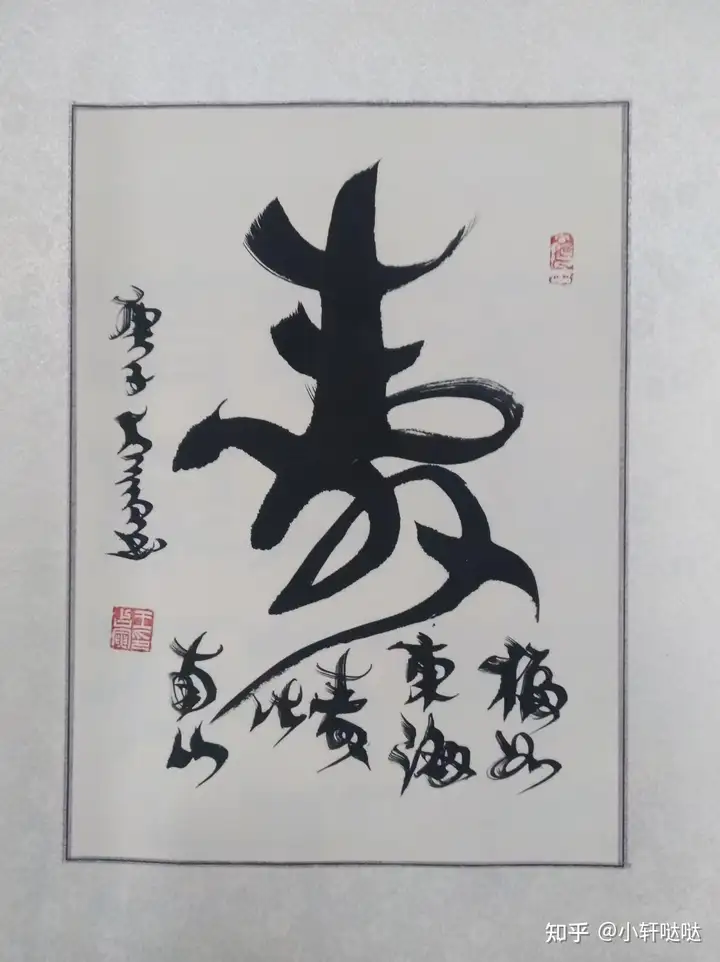 寿
福如
東海
壽比
南山
庚子
知乎 @小轩哒哒